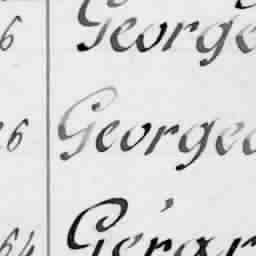 6 George
26 George
64 Gérar